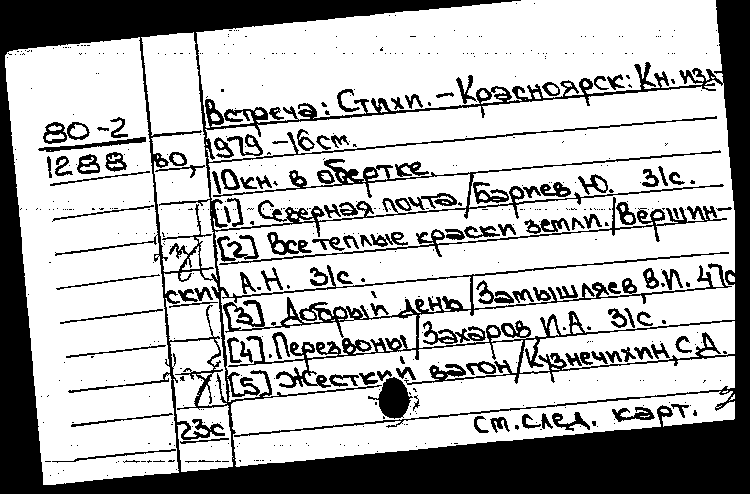 Встреча: Стихи. – Красноярск: Кн. изд
80-2
1288
во,
1979. – 16 см.
10 кн. в обертке.
[1]. Северная почта. / Бариев, Ю. 31с.
[2] Все теплые краски земли. / Вершин-
ский, А.Н. 31с.
[3]. Добрый день / Замышляев, В.П. 47с
[4]. Перезвоны / Захаров И.А. 31с.
[5]. Жесткий вагон / Кузнечихин, С.Д.
23с
см. след. карт.